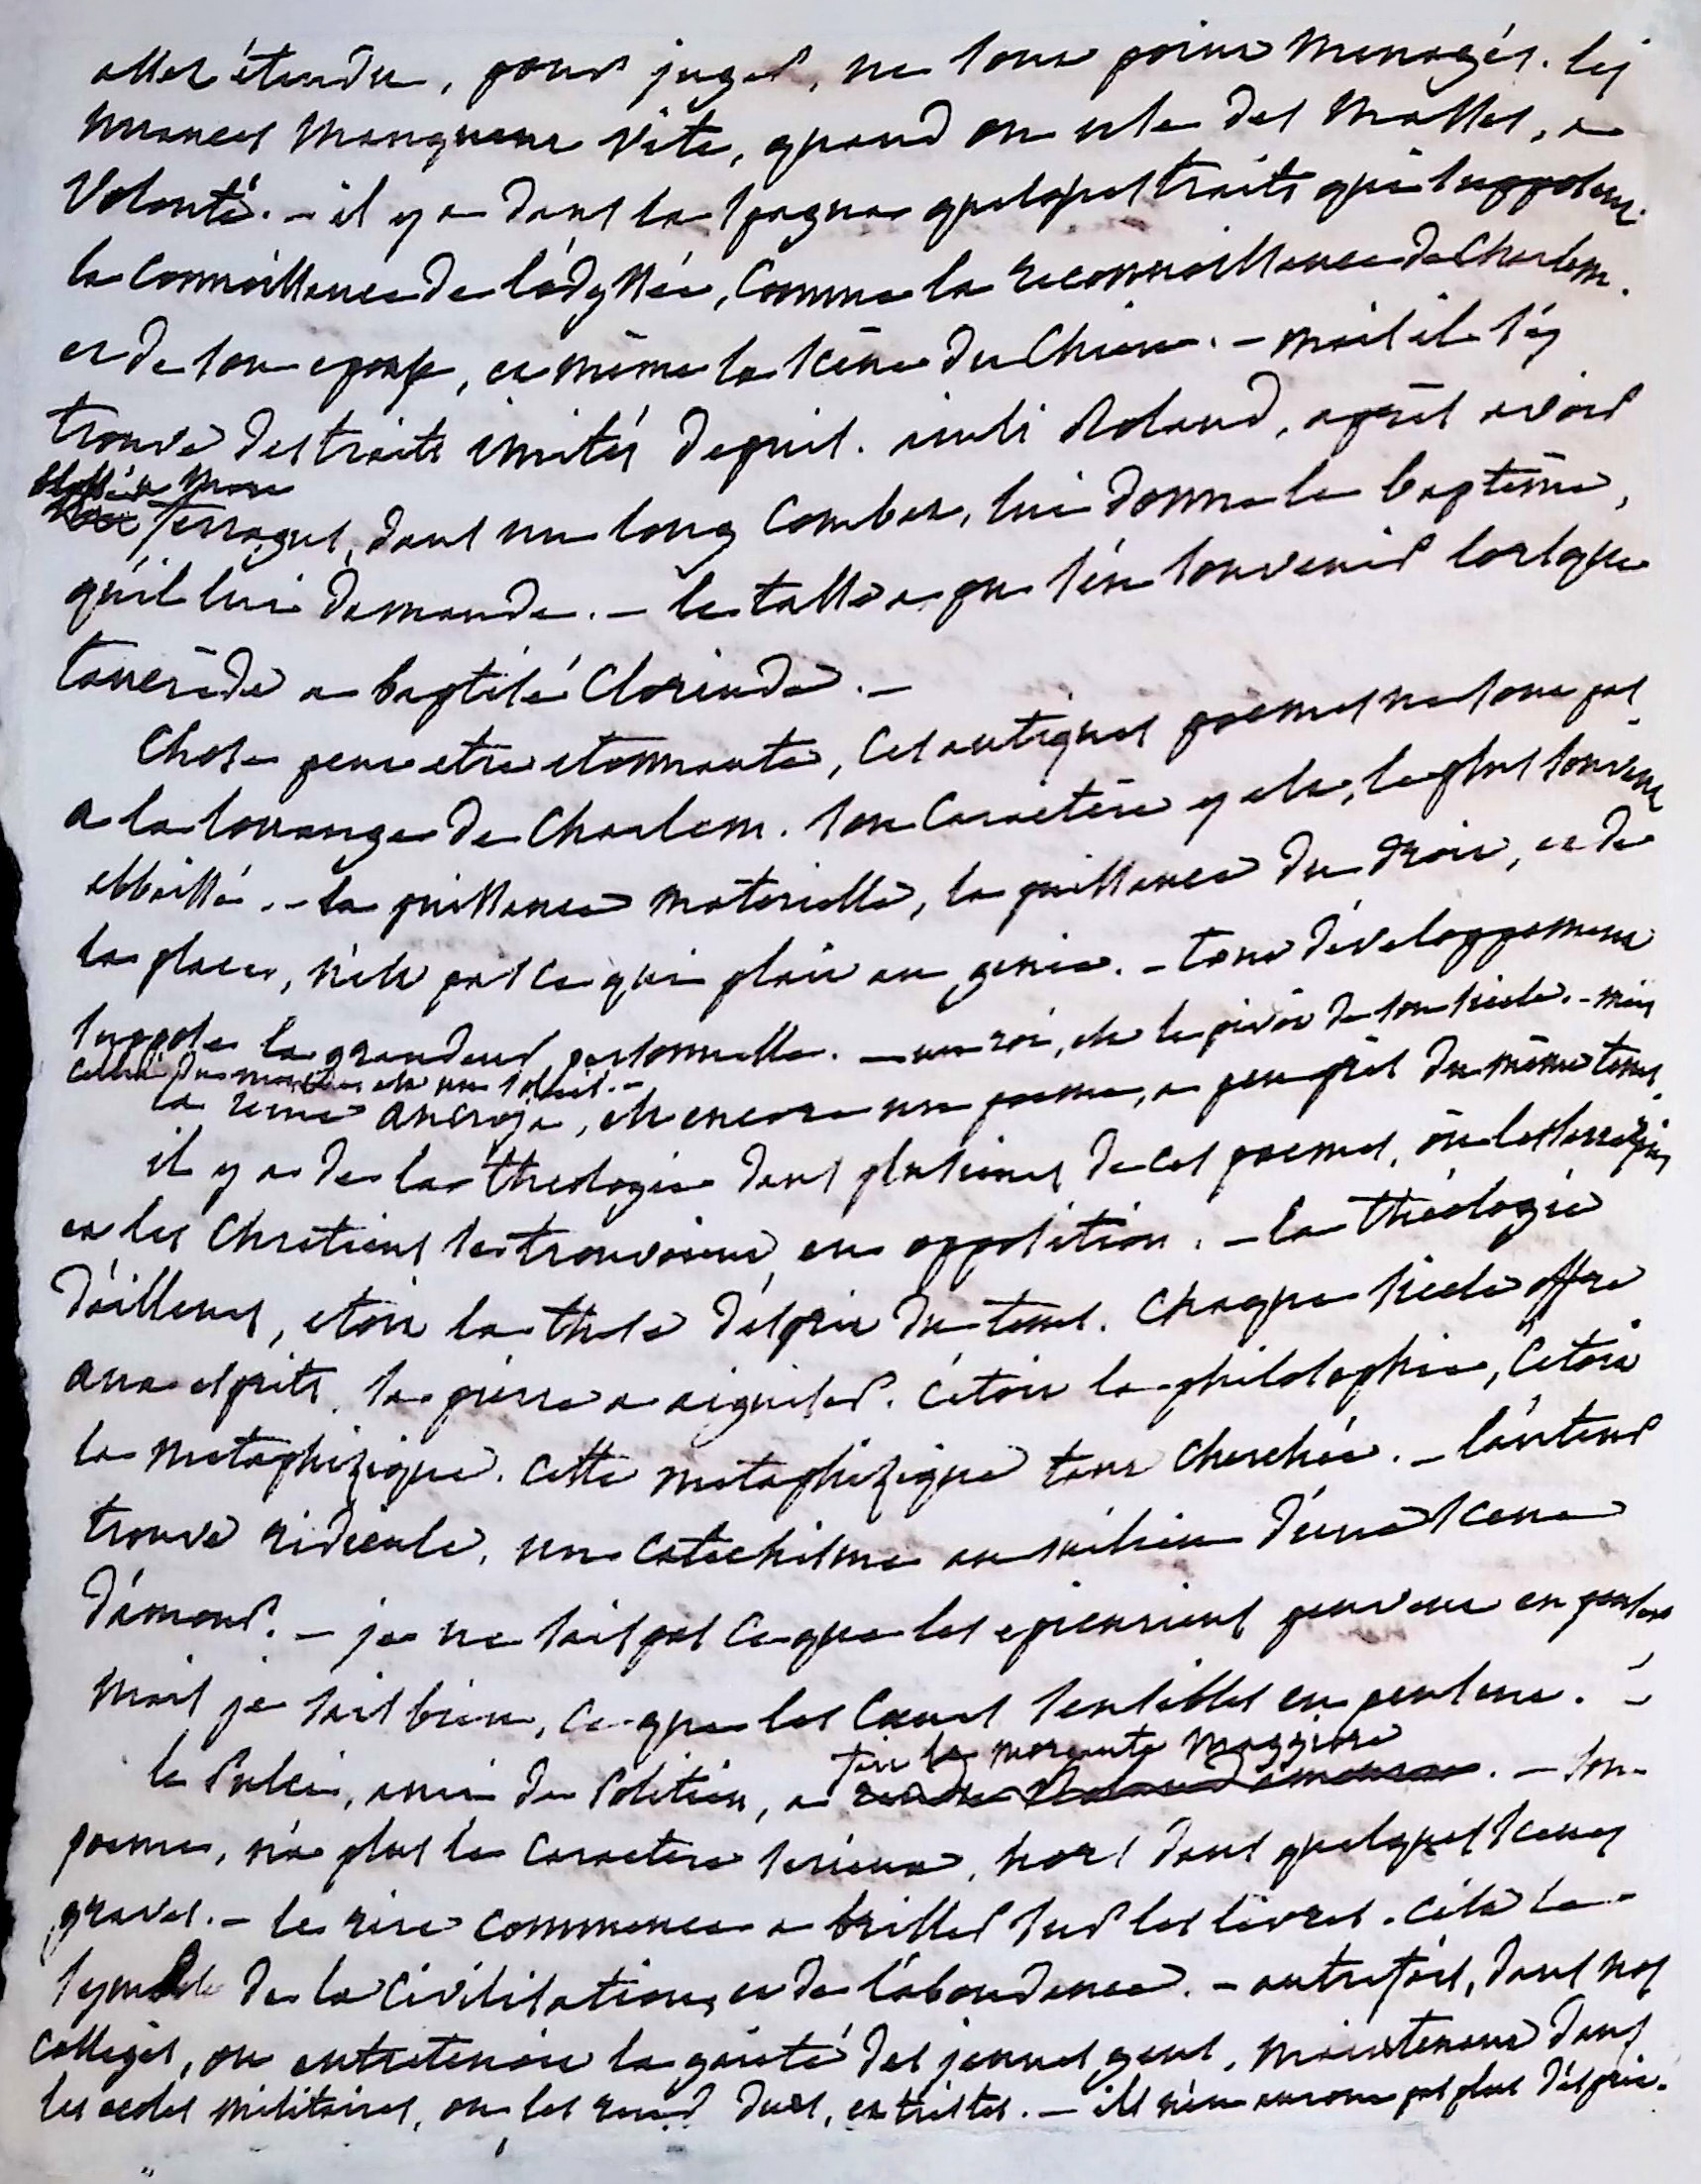 assez étendu, pour juger, ne sont point menagés. les
nuances manquent vite, quand on use des masses, a
volonté. – il y a dans la spagna quelques traits qui supposent
la connoissance de l'odyssée, comme la reconnoissance de Charlem.
et de son epouse, et même la scène du chien. – mais il s'y
trouve des traits imités depuis. ainsi Roland, après avoir
blessé a mort
ferragus, dans un long combat, lui donne le baptême,
qu'il lui demande. – le tasse a pu s'en souvenir lorsque
tancrède a baptisé Clorinde. –
Chose peut etre etonnante, ces antiques poemes ne sont pas
a la louange de Charlem. son caractère y est, le plus souvent
abbaissé. – la puissance materielle, la puissance du droit, et de
la place, n'est pas ce qui plait au genie. – tout développement
suppose la grandeur personnelle. – un roi, est le pivot de son siecle. – mais
celui du est un soleil. –
la reine ancroja, est encore un poeme, a peu près du même tems.
il y a de la theologie dans plusieurs de ces poemes, où les sarrazins
et les Chretiens se trouvoient en opposition. – la théologie
d'ailleurs, etoit la these d'esprit du tems. Chaque siecle offre
aux esprits, sa pierre a aiguiser. c'etoit la philosophie, c'etoit
la metaphizique. cette metaphizique tant cherchée. – l'auteur
trouve ridicule, un catechisme au milieu d'une scene
d'amour. – je ne sais pas ce que les epicuriens peuvent en penser
mais je sais bien, ce que les coeurs sensibles en pensent. –
fait le morgante maggiore
le Pulci, ami de Politien, a . – son
poeme, n'a plus le caractere serieux, hors dans quelques scenes
graves. – le rire commence a briller sur les levres. c'est le
symbole de la civilisation, et de l'abondance. – autrefois, dans nos
colleges, on entretenoit la gaieté des jeunes gens, maintenant dans
les ecoles militaires, on les rend durs, et tristes. – ils n'en auront pas plus d'esprit.